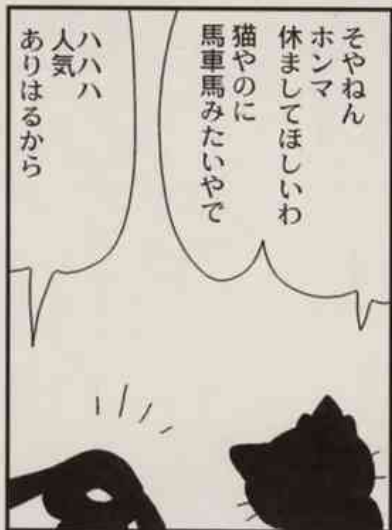 そやねん
ホンマ
休ましてほしいわ
猫やのに
馬車馬みたいやで
ハハハ
人気
ありはるから